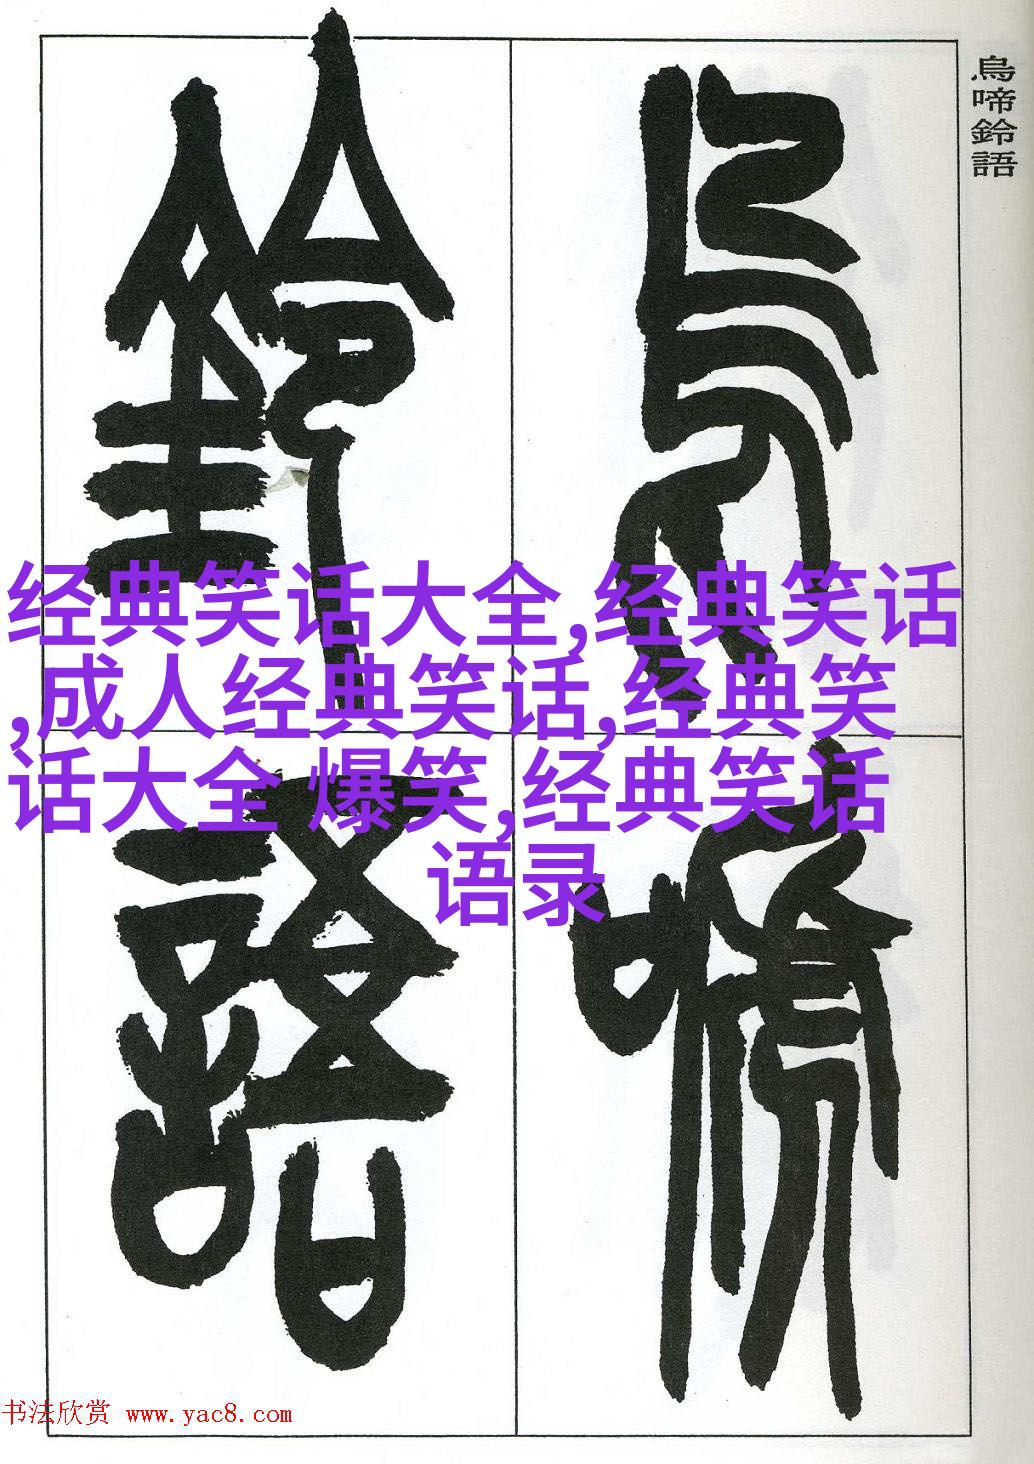 鳥啼鈴語
鳥啼
鈴語
经典笑话大全,经典笑话
,成人经典笑话,经典笑
话大全 爆笑,经典笑话
语录
书法欣赏 www.yac8.com